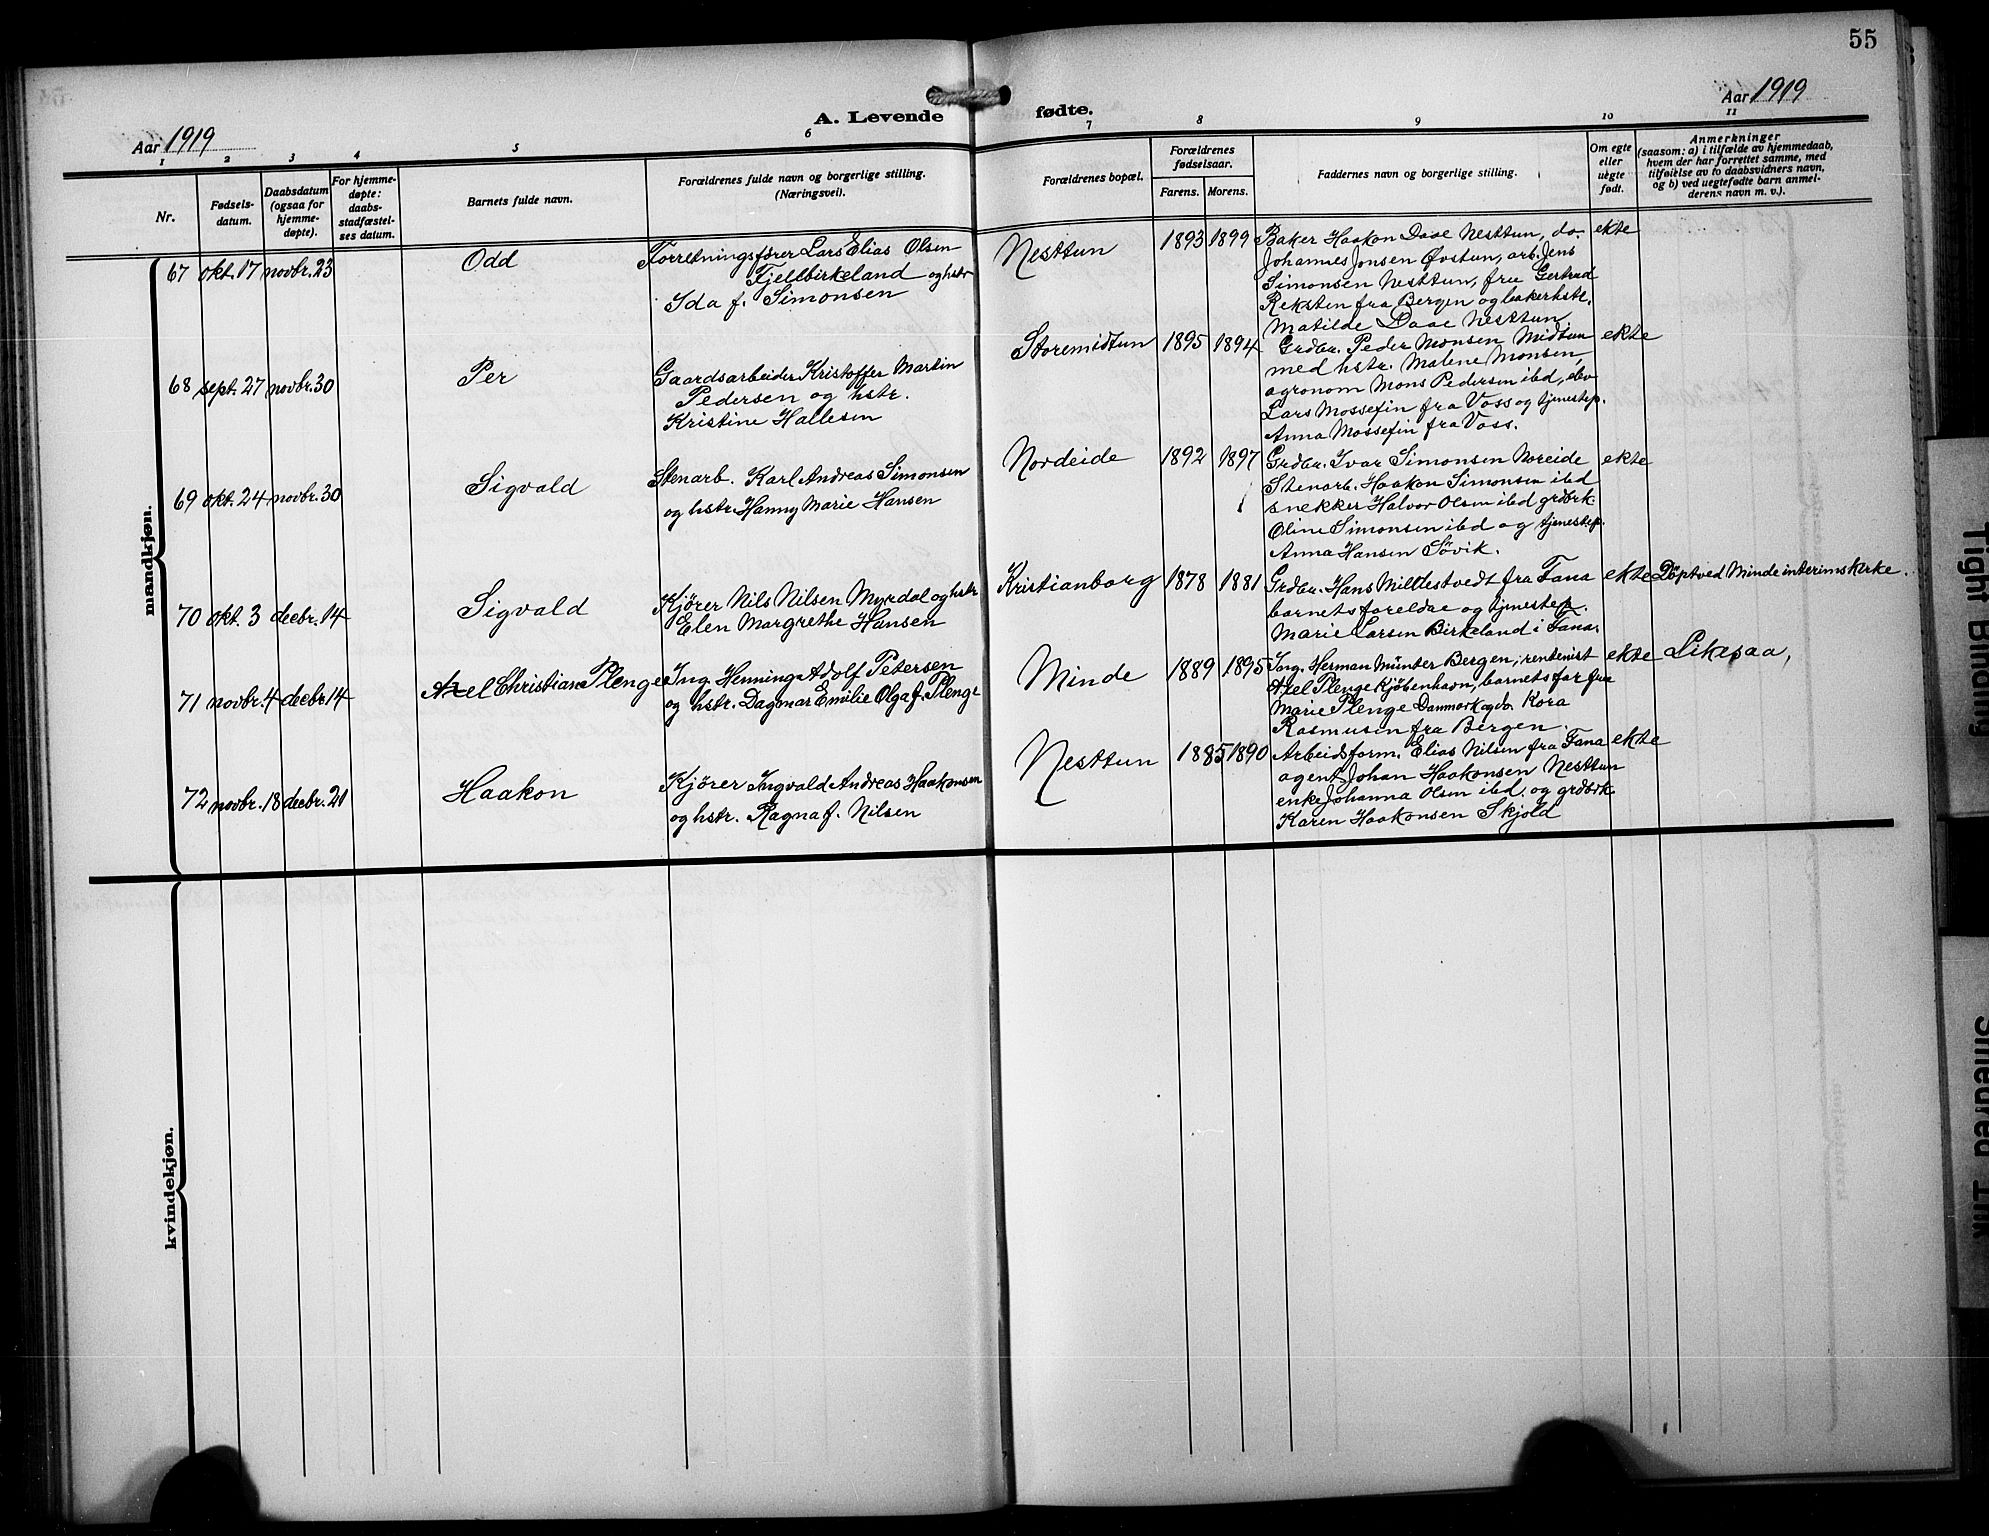 55
Aar 1919
A. Levende fødte.
Aar 1919
1 2 3 4 5 6 7 8 9 10 11
Nr.
Fødsels-
datum.
Daabsdatum
(ogsaa for
hjemme-
døpte).
For hjemme-
døpte:
daabs-
stadfæstel-
ses datum.
Barnets fulde navn.
Forældrenes fulde navn og borgerlige stilling.
(Næringsvei).
Forældrenes bopæl.
Forældrenes
fødselsaar.
Farens. Morens.
Faddernes navn og borgerlige stilling.
Om egte
eller
uegte
født.
Anmerkninger
(saasom: a) i tilfælde av hjemmedaab,
hvem der har forrettet samme, med
tilføielse av to daabsvidners navn,
og b) ved uegtefødte barn anmel-
derens navn m. v.).
mandkjøn.
67 okt. 17 novbr. 23 Odd
Forretningsfører Lars Elias Olsen
Fjellbirkeland og hstr
Ida f. Simonsen
Nesttun 1893 1899
Baker Haakon Daae Nesttun, do.
Johannes Jonsen Øvstun, arb. Jens
Simonsen Nesttun, frue Gertrud
Reksten fra Bergen og bakerhstr.
Matilde Daae Nesttun
ekte
68 sept. 27 novbr. 30 Per
Gaardsarbeider Kristoffer Martin
Pedersen og hstr.
Kristine Hallesen
Storemidtun 1895 1894
Grdbr. Peder Monsen Midtun
med hstr. Malene Monsen,
agronom Mons Pedersen ibd, elev
Lars Mossefin fra Voss og tjenestep.
Anna Mossefin fra Voss.
ekte
69 okt. 24 novbr. 30 Sigvald
Stenarb. Karl Andreas Simonsen
og hstr. Hanny Marie Hansen
Nordeide 1892 1897
Grdbr. Ivar Simonsen Noreide
Stenarb. Haakon Simonsen ibd
snekker Halvor Olsen ibd grdbrk.
Oline Simonsen ibd og tjenestep.
Anna Hansen Søvik.
ekte
70 okt. 3 decbr. 14 Sigvald
Kjører Nils Nilsen Myrdal og hstr
Elen Margrethe Hansen
Kristianborg 1878 1881
Grdbr. Hans Milllestvedt fra Fana
barnets foreldre og tjenestep.
Marie Larsen Birkeland i Fana.
ekte Döpt ved Minde interimskirke.
71 novbr. 4 decbr 14 Axel Christian Plenge
Ing. Henning Adolf Petersen
og hstr. Dagmar Emilie Olga f. Plenge
Minde 1889 1895
Ing. Herman Münter Bergen, rentenist
Axel Plenge Kjöbenhavn, barnets far frue
Marie Plenge Danmark og do. Kora
Rasmusen fra Bergen.
ekte Likesaa,
72 novbr. 18 decbr. 21 Haakon
Kjörer Ingvald Andreas Haakonsen
og hstr. Ragna f. Nilsen
Nesttun 1885 1890
Arbeidsform. Elias Nilsen fra Fana
agent Johan Haakonsen Nesttun
enke Johanna Olsen ibd. og grdbrk
Karen Haakonsen Skjold
ekte
kvindekjøn.
Tight Binding
Smeared Ink